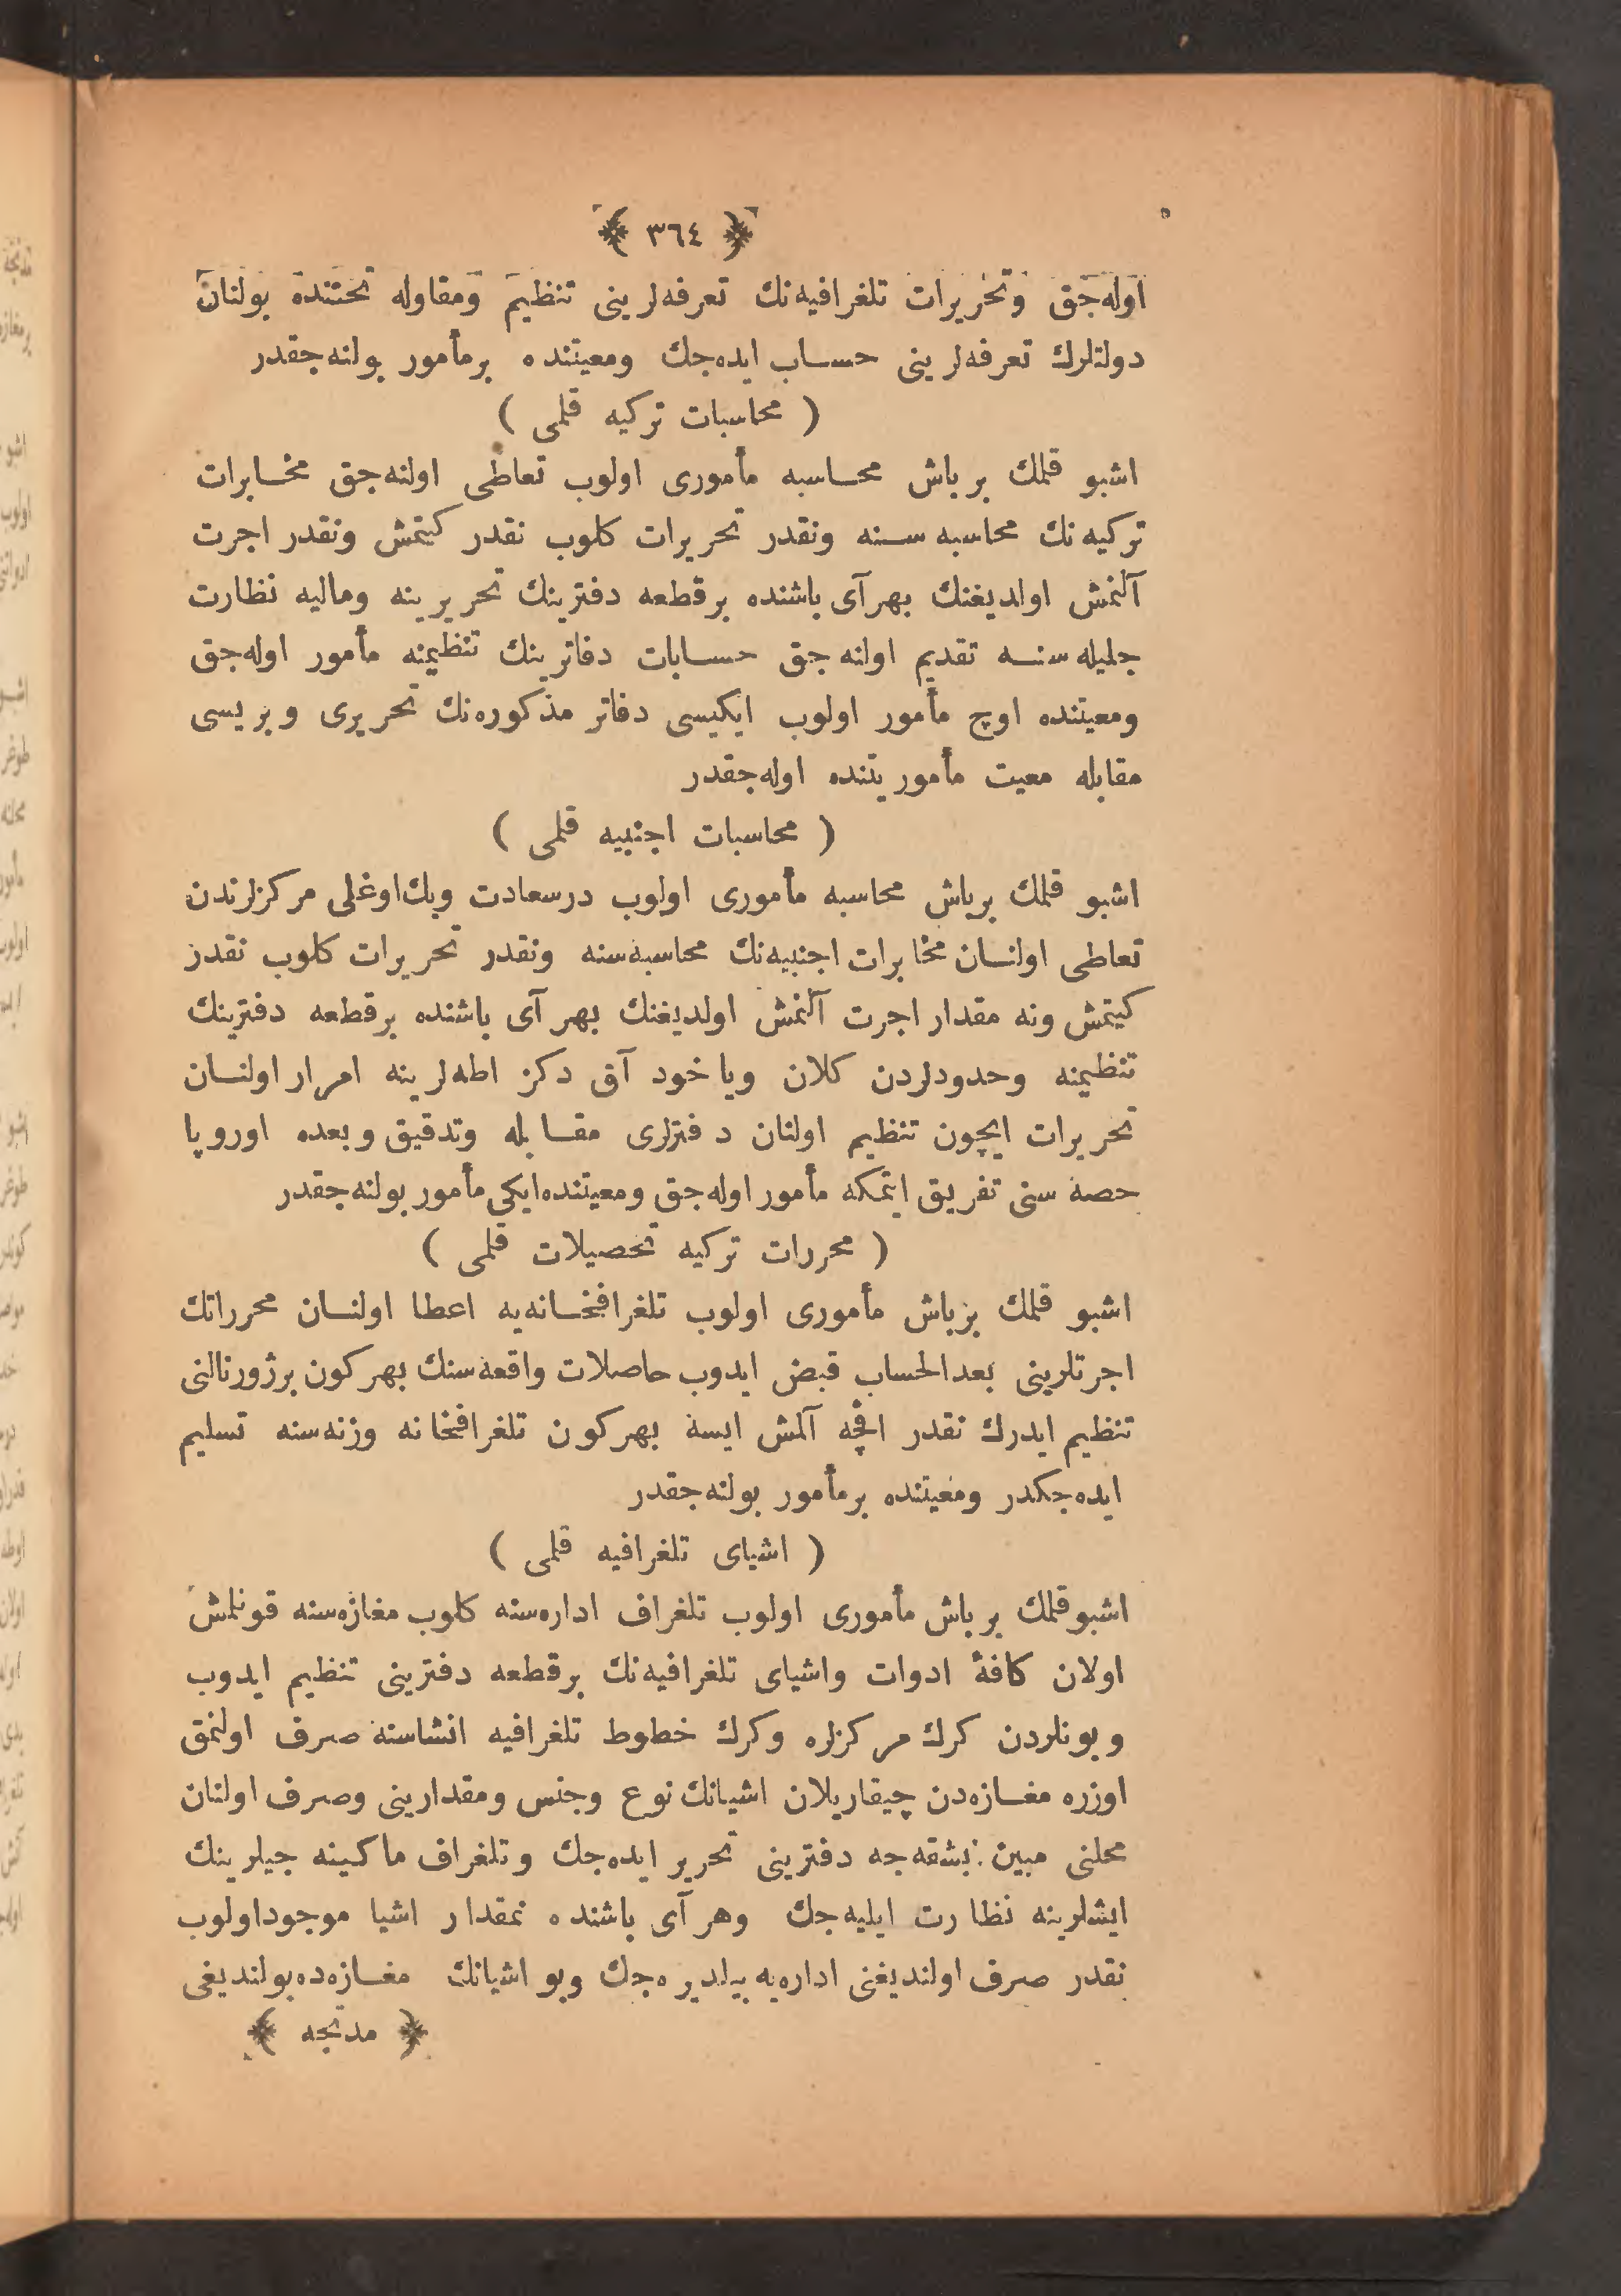 ﴿ ٣٦٤ ﴾
اوله‌جق وتحریرات تلغرافیه‌نك تعرفه‌لرینی تنظیم ومقاوله تحتنده بولنان
دولتلرك تعرفه‌لرینی حساب ایده‌جك ومعیتنده برمأمور بولنه‌جقدر
( محاسبات ترکیه قلمی )
اشبو قلمك برباش محاسبه مأموری اولوب تعاطی اولنه‌جق مخابرات
ترکیه‌نك محاسبه‌سنه ونقدر تحریرات کلوب نقدر کیتمش ونقدر اجرت
آلنمش اولدیغنك بهرآی باشنده برقطعه دفترینك تحریرینه ومالیه نظارت
جلیله‌سنه تقدیم اولنه‌جق حسابات دفاترینك تنظیمنه مأمور اوله‌جق
ومعیتنده اوچ مأمور اولوب ایکیسی دفاتر مذکوره‌نك تحریری وبریسی
مقابله معیت مأموریتنده اوله‌جقدر
( محاسبات اجنبیه قلمی )
اشبو قلمك برباش محاسبه مأموری اولوب درسعادت وبك‌اوغلی مرکزلرندن
تعاطی اولنان مخابرات اجنبیه‌نك محاسبه‌سنه ونقدر تحریرات کلوب نقدر
کیتمش ونه مقدار اجرت آلنمش اولدیغنك بهر آی باشنده برقطعه دفترینك
تنظیمنه وحدودلردن کلان ویاخود آق دکز اطه‌لرینه امرار اولنان
تحریرات ایچون تنظیم اولنان دفترلری مقابله وتدقیق وبعده اوروپا
حصه‌سنی تفریق ایتمکه مأمور اوله‌جق ومعیتنده‌ایکی مأمور بولنه‌جقدر
( محررات ترکیه تحصیلات قلمی )
اشبو قلمك برباش مأموری اولوب تلغرافخانه‌یه اعطا اولنان محرراتك
اجرتلرینی بعدالحساب قبض ایدوب حاصلات واقعه‌سنك بهرکون برژورنالنی
تنظیم ایدرك نقدر اقچه آلمش ایسه بهرکون تلغرافخانه وزنه‌سنه تسلیم
ایده‌جکدر ومعیتنده برمأمور بولنه‌جقدر
( اشیای تلغرافیه قلمی )
اشبوقلمك برباش مأموری اولوب تلغراف اداره‌سنه کلوب مغازه‌سنه قونلمش
اولان کافهٔ ادوات واشیای تلغرافیه‌نك برقطعه دفترینی تنظیم ایدوب
وبونلردن کرك مرکزلره وکرك خطوط تلغرافیه انشاسنه صرف اولنمق
اوزره مغازه‌دن چیقاریلان اشیانك نوع وجنس ومقدارینی وصرف اولنان
محلنی مبین بشقه‌جه دفترینی تحریر ایده‌جك وتلغراف ماکینه جیلرینك
ایشلرینه نظارت ایلیه‌جك وهر آی باشنده نمقدار اشیا موجوداولوب
نقدر صرف اولندیغنی اداره‌یه بیلدیره‌جك وبو اشیانك مغازه‌ده‌بولندیغی
﴿ مدتجه ﴾